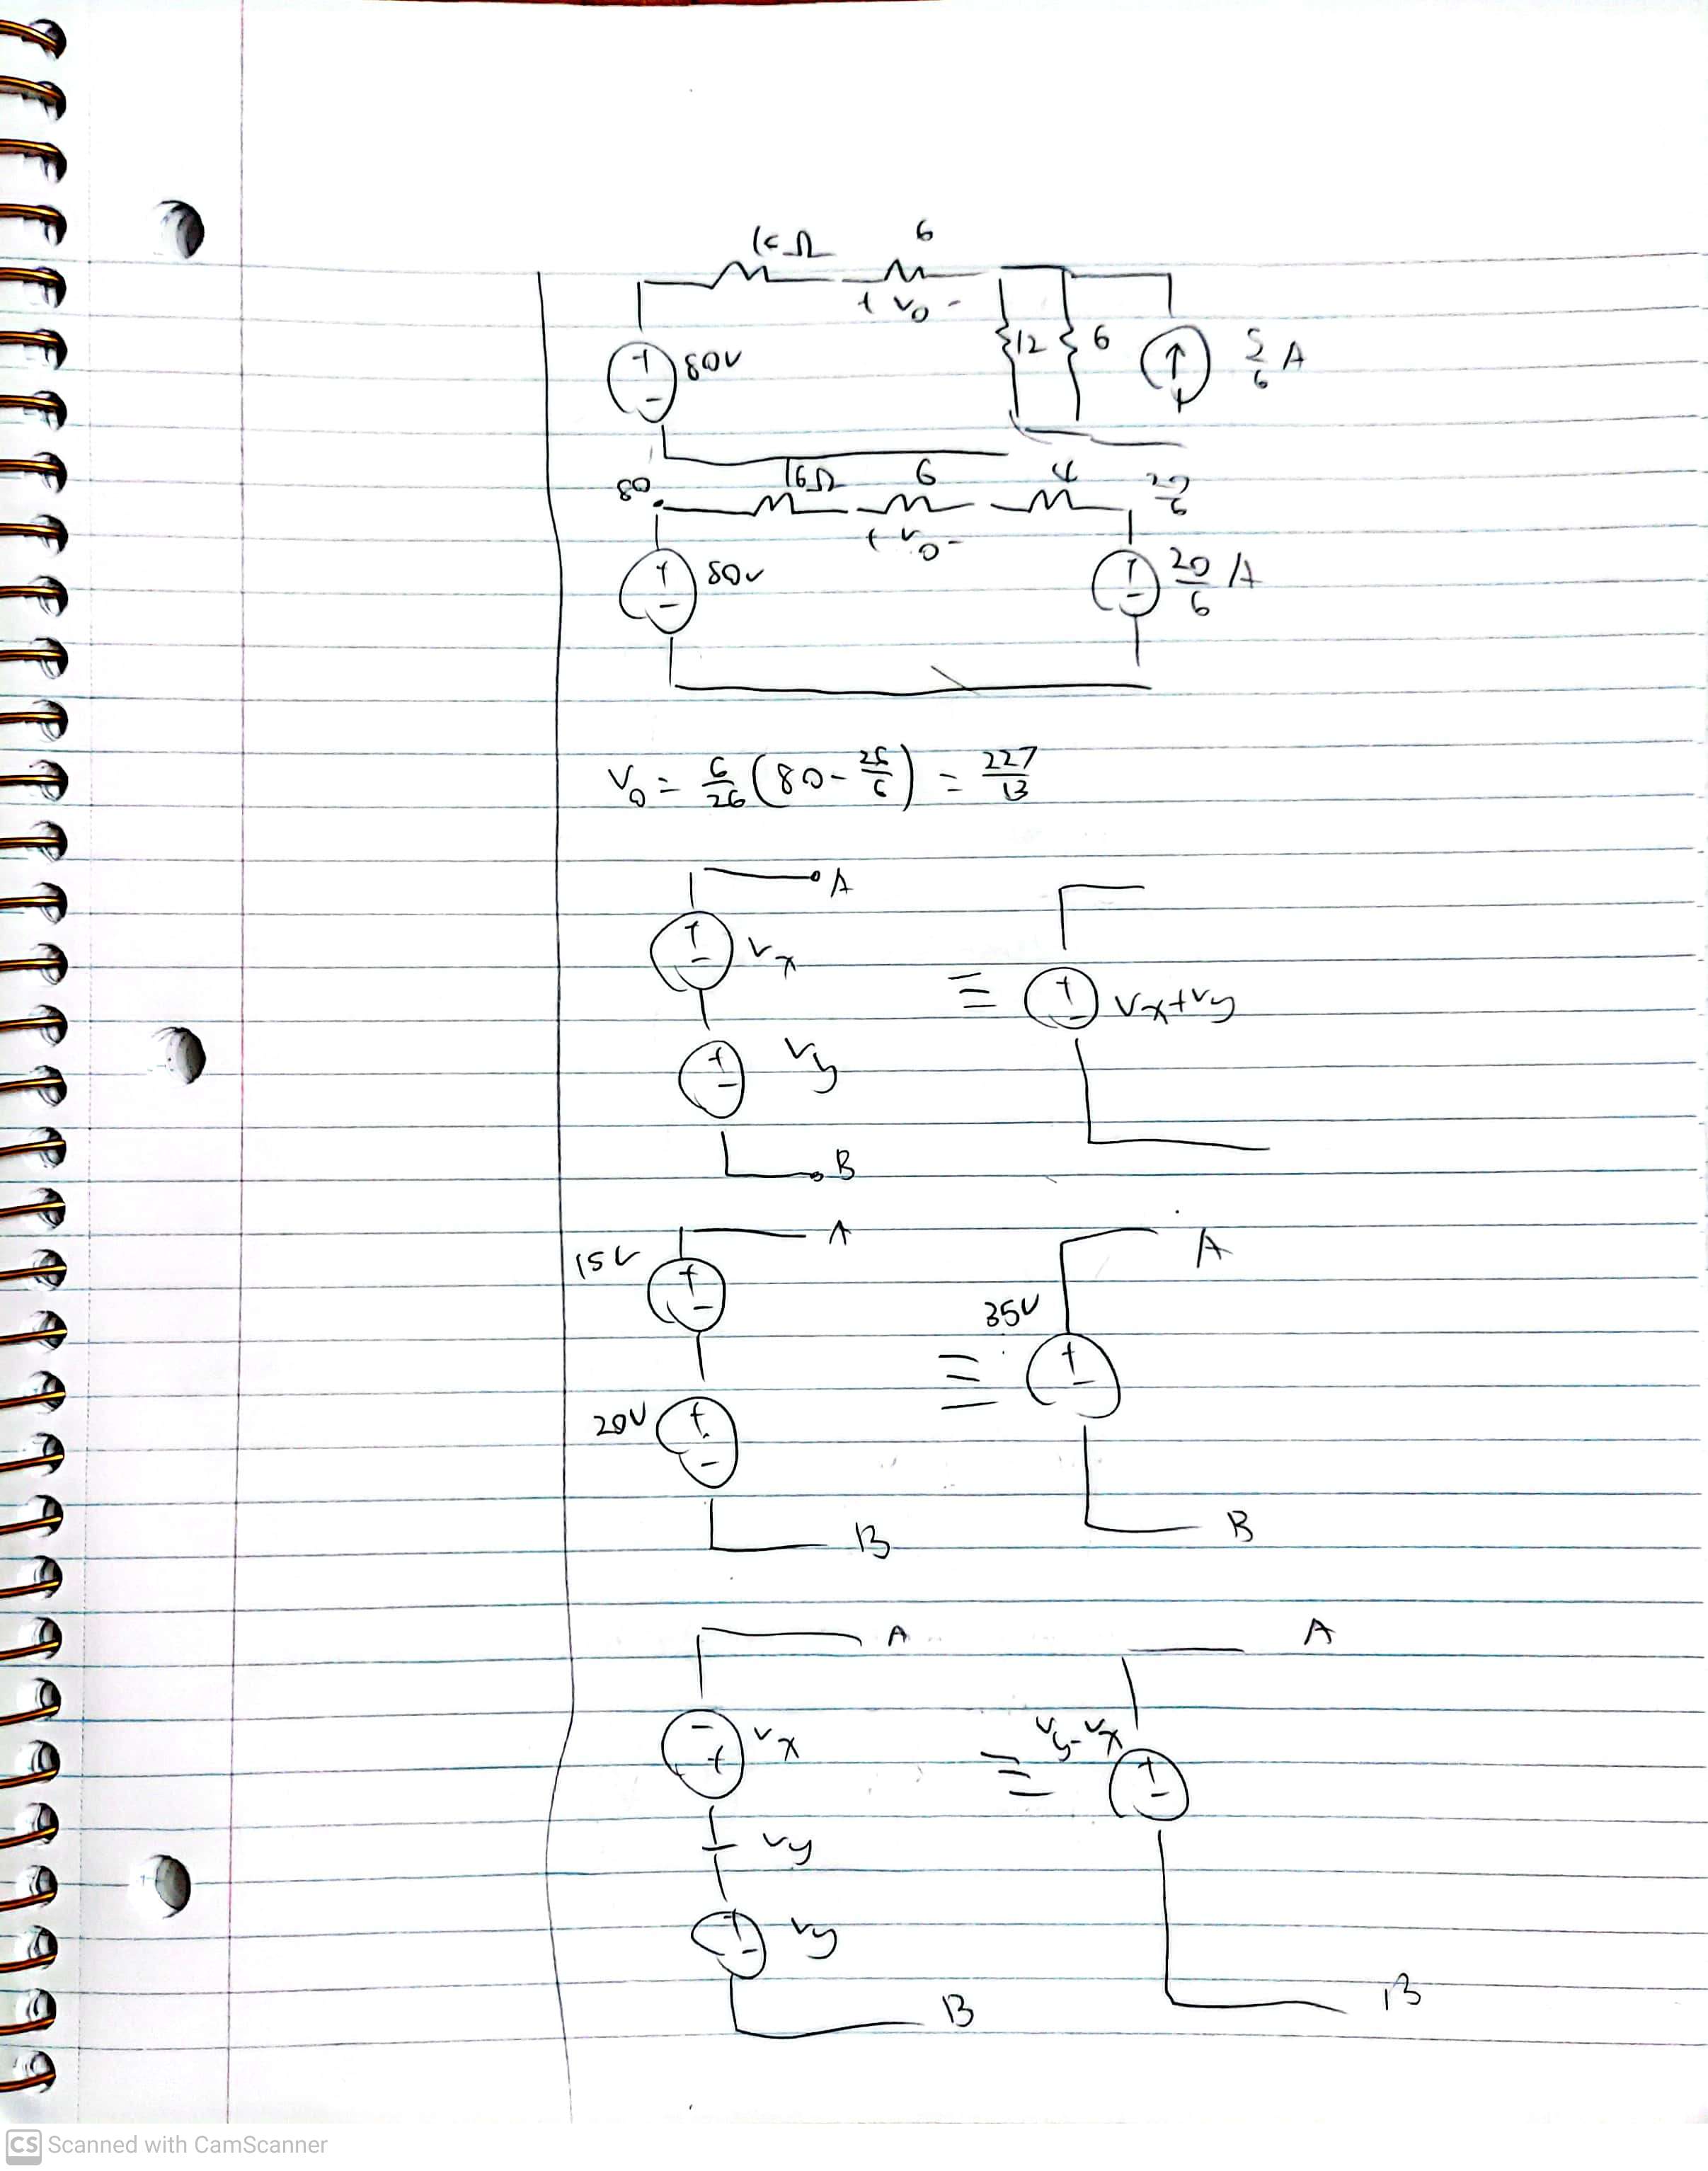 16Ω 6
+ v₀ -
+ - 80V 12 6 5/6 A
80 16Ω 6 4 20/6
+ v₀ -
+ - 80V + - 20/6 A
V₀ = 6/26 (80 - 26/6) = 227/13
A
+ - Vx
≡ + - Vx+Vy
+ - Vy
B
A A
15V + - 35V
≡ + -
20V + -
B B
A A
- + Vx ≡ Vy-Vx + -
+ Vy
+ - Vy
B B
CS Scanned with CamScanner